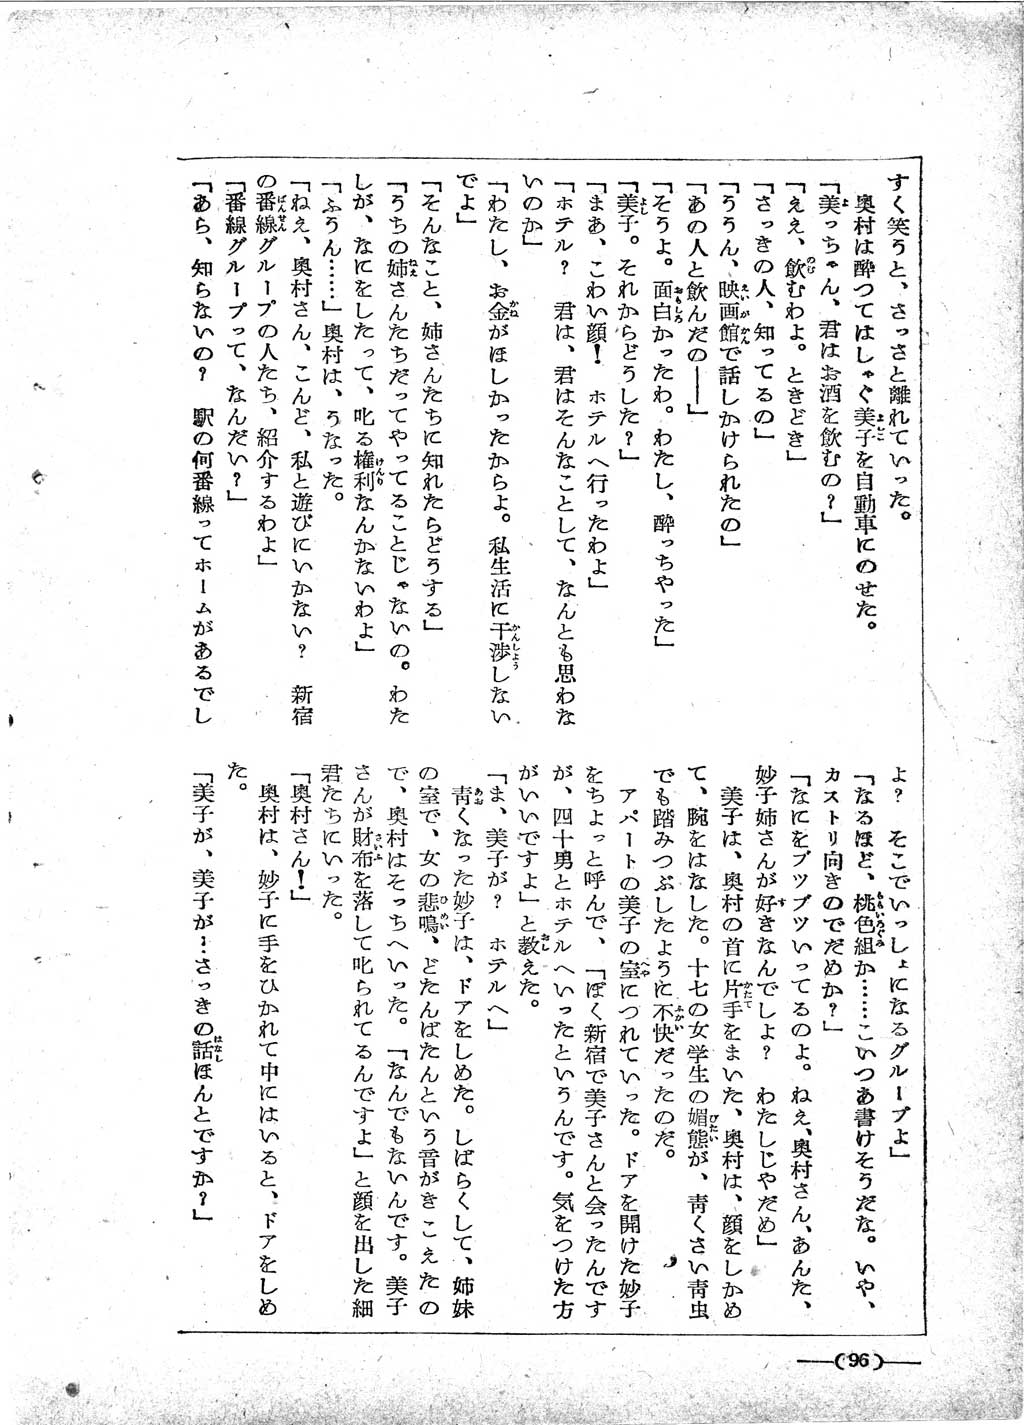 すく笑うと、さっさと離れていった。
　奥村は酔つてはしゃぐ美子を自動車にのせた。
「美っちゃん、君はお酒を飲むの?」
「ええ、飲むわよ。ときどき」
「さっきの人、知ってるの」
「ううん、映画館で話しかけられたの」
「あの人と飲んだの――」
「そうよ。面白かったわ。わたし、酔っちやった」
「美子。それからどうした?」
「まあ、こわい顔!　ホテルへ行ったわよ」
「ホテル?　君は、君はそんなことして、なんとも思わな
いのか」
「わたし、お金がほしかったからよ。私生活に干渉しない
でよ」
「そんなこと、姉さんたちに知れたらどうする」
「うちの姉さんたちだってやってることじゃないの。わた
しが、なにをしたって、叱る権利なんかないわよ」
「ふうん……」奥村は、うなった。
「ねえ、奥村さん、こんど、私と遊びにいかない?　新宿
の番線グループの人たち、紹介するわよ」
「番線グループって、なんだい?」
「あら、知らないの?　駅の何番線ってホームがあるでし
よ?　そこでいっしょになるグループよ」
「なるほど、桃色組か……こいつあ書けそうだな。いや、
カストリ向きのでだめか?」
「なにをブツブツいってるのよ。ねえ、奥村さん、あんた、
妙子姉さんが好きなんでしよ?　わたしじやだめ」
　美子は、奥村の首に片手をまいた、奥村は、顔をしかめ
て、腕をはなした。十七の女学生の媚態が、靑くさい靑虫
でも踏みつぶしたように不快だったのだ。
　アパートの美子の室につれていった。ドアを開けた妙子
をちよっと呼んで、「ぼく新宿で美子さんと会ったんです
が、四十男とホテルへいったというんです。気をつけた方
がいいですよ」と教えた。
「ま、美子が?　ホテルへ」
　靑くなった妙子は、ドアをしめた。しばらくして、姉妹
の室で、女の悲鳴、どたんばたんという音がきこえたの
で、奥村はそっちへいった。「なんでもないんです。美子
さんが財布を落して叱られてるんですよ」と顔を出した細
君たちにいった。
「奥村さん!」
　奥村は、妙子に手をひかれて中にはいると、ドアをしめ
た。
「美子が、美子が…さっきの話ほんとですか?」
(96)